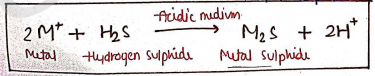 Acidic medium
2M⁺ + H₂S → M₂S + 2H⁺
Metal Hydrogen Sulphide Metal Sulphide